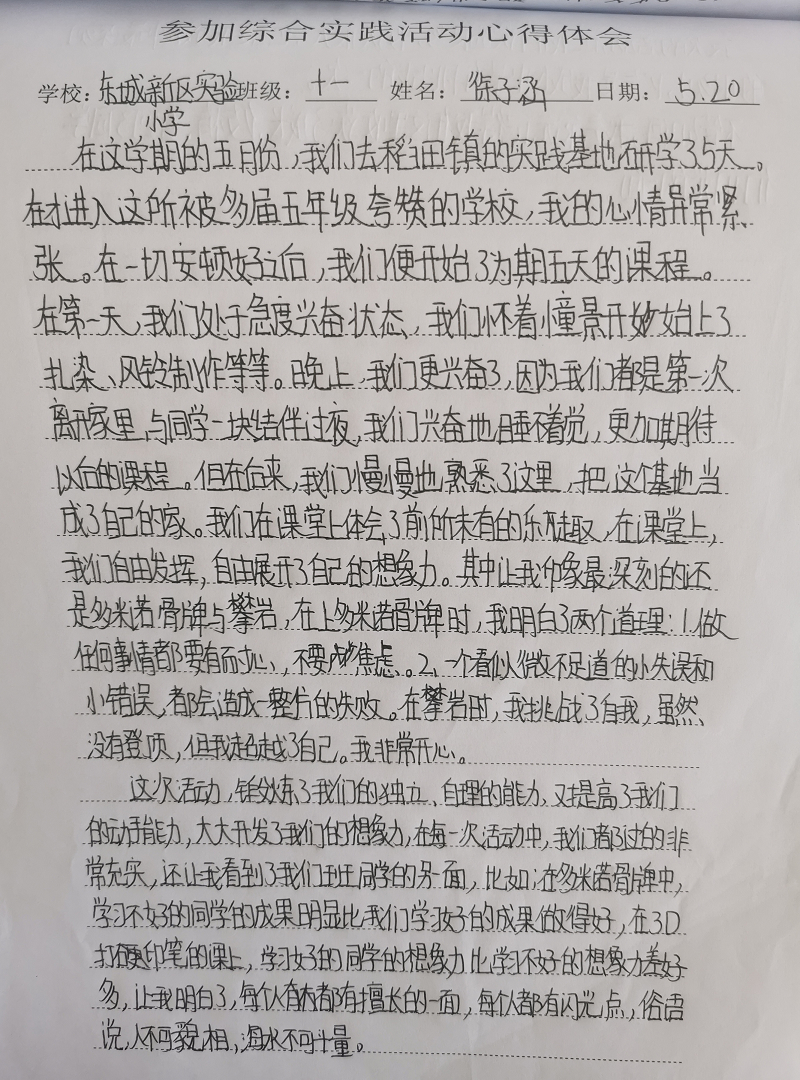 参加综合实践活动心得体会
学校：东城新区实验小学 班级：十一 姓名：徐子涵 日期：5.20
在这学期的五月份，我们去稻田镇的实践基地研学了5天。
在才进入这所被多届五年级夸赞的学校，我的心情异常紧
张。在一切安顿好之后，我们便开始了为期五天的课程。
在第一天，我们处于急度兴奋状态，我们怀着憧景开始上了
扎染、风铃制作等等。晚上，我们更兴奋了，因为我们都是第一次
离开家里，与同学一块结伴过夜，我们兴奋地睡不着觉，更加期待
以后的课程。但在后来，我们慢慢地熟悉了这里，把这个基地当
成了自己的家。我们在课堂上体会了前所未有的乐趣，在课堂上，
我们自由发挥，自由展开了自己的想象力。其中让我印象最深刻的还
是多米诺骨牌与攀岩，在上多米诺骨牌时，我明白了两个道理：1.做
任何事情都要有耐心，不要焦虑。2、一个看似微不足道的小失误和
小错误，都会造成一整片的失败。在攀岩时，我挑战了自我，虽然
没有登顶，但我超越了自己。我非常开心。
这次活动，锻炼了我们的独立、自理的能力，又提高了我们
的动手能力，大大开发了我们的想象力，在每一次活动中，我们都过的非
常充实，还让我看到了我们班同学的另一面，比如：在多米诺骨牌中，
学习不好的同学的成果明显比我们学习好的成果做得好，在3D
打印笔的课上，学习好的同学的想象力比学习不好的想象力差好
多，让我明白了，每个人都有擅长的一面，每个人都有闪光点，俗语
说，人不可貌相，海水不可斗量。